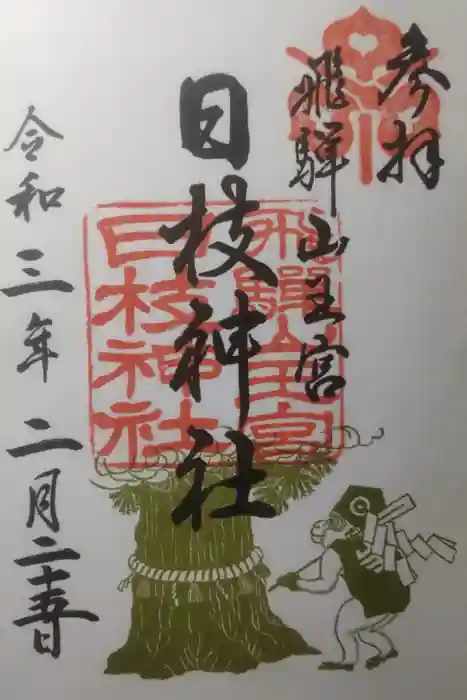 参拝
飛驒山王宮
日枝神社
令和三年二月二十五日
飛驒山王宮
日枝神社